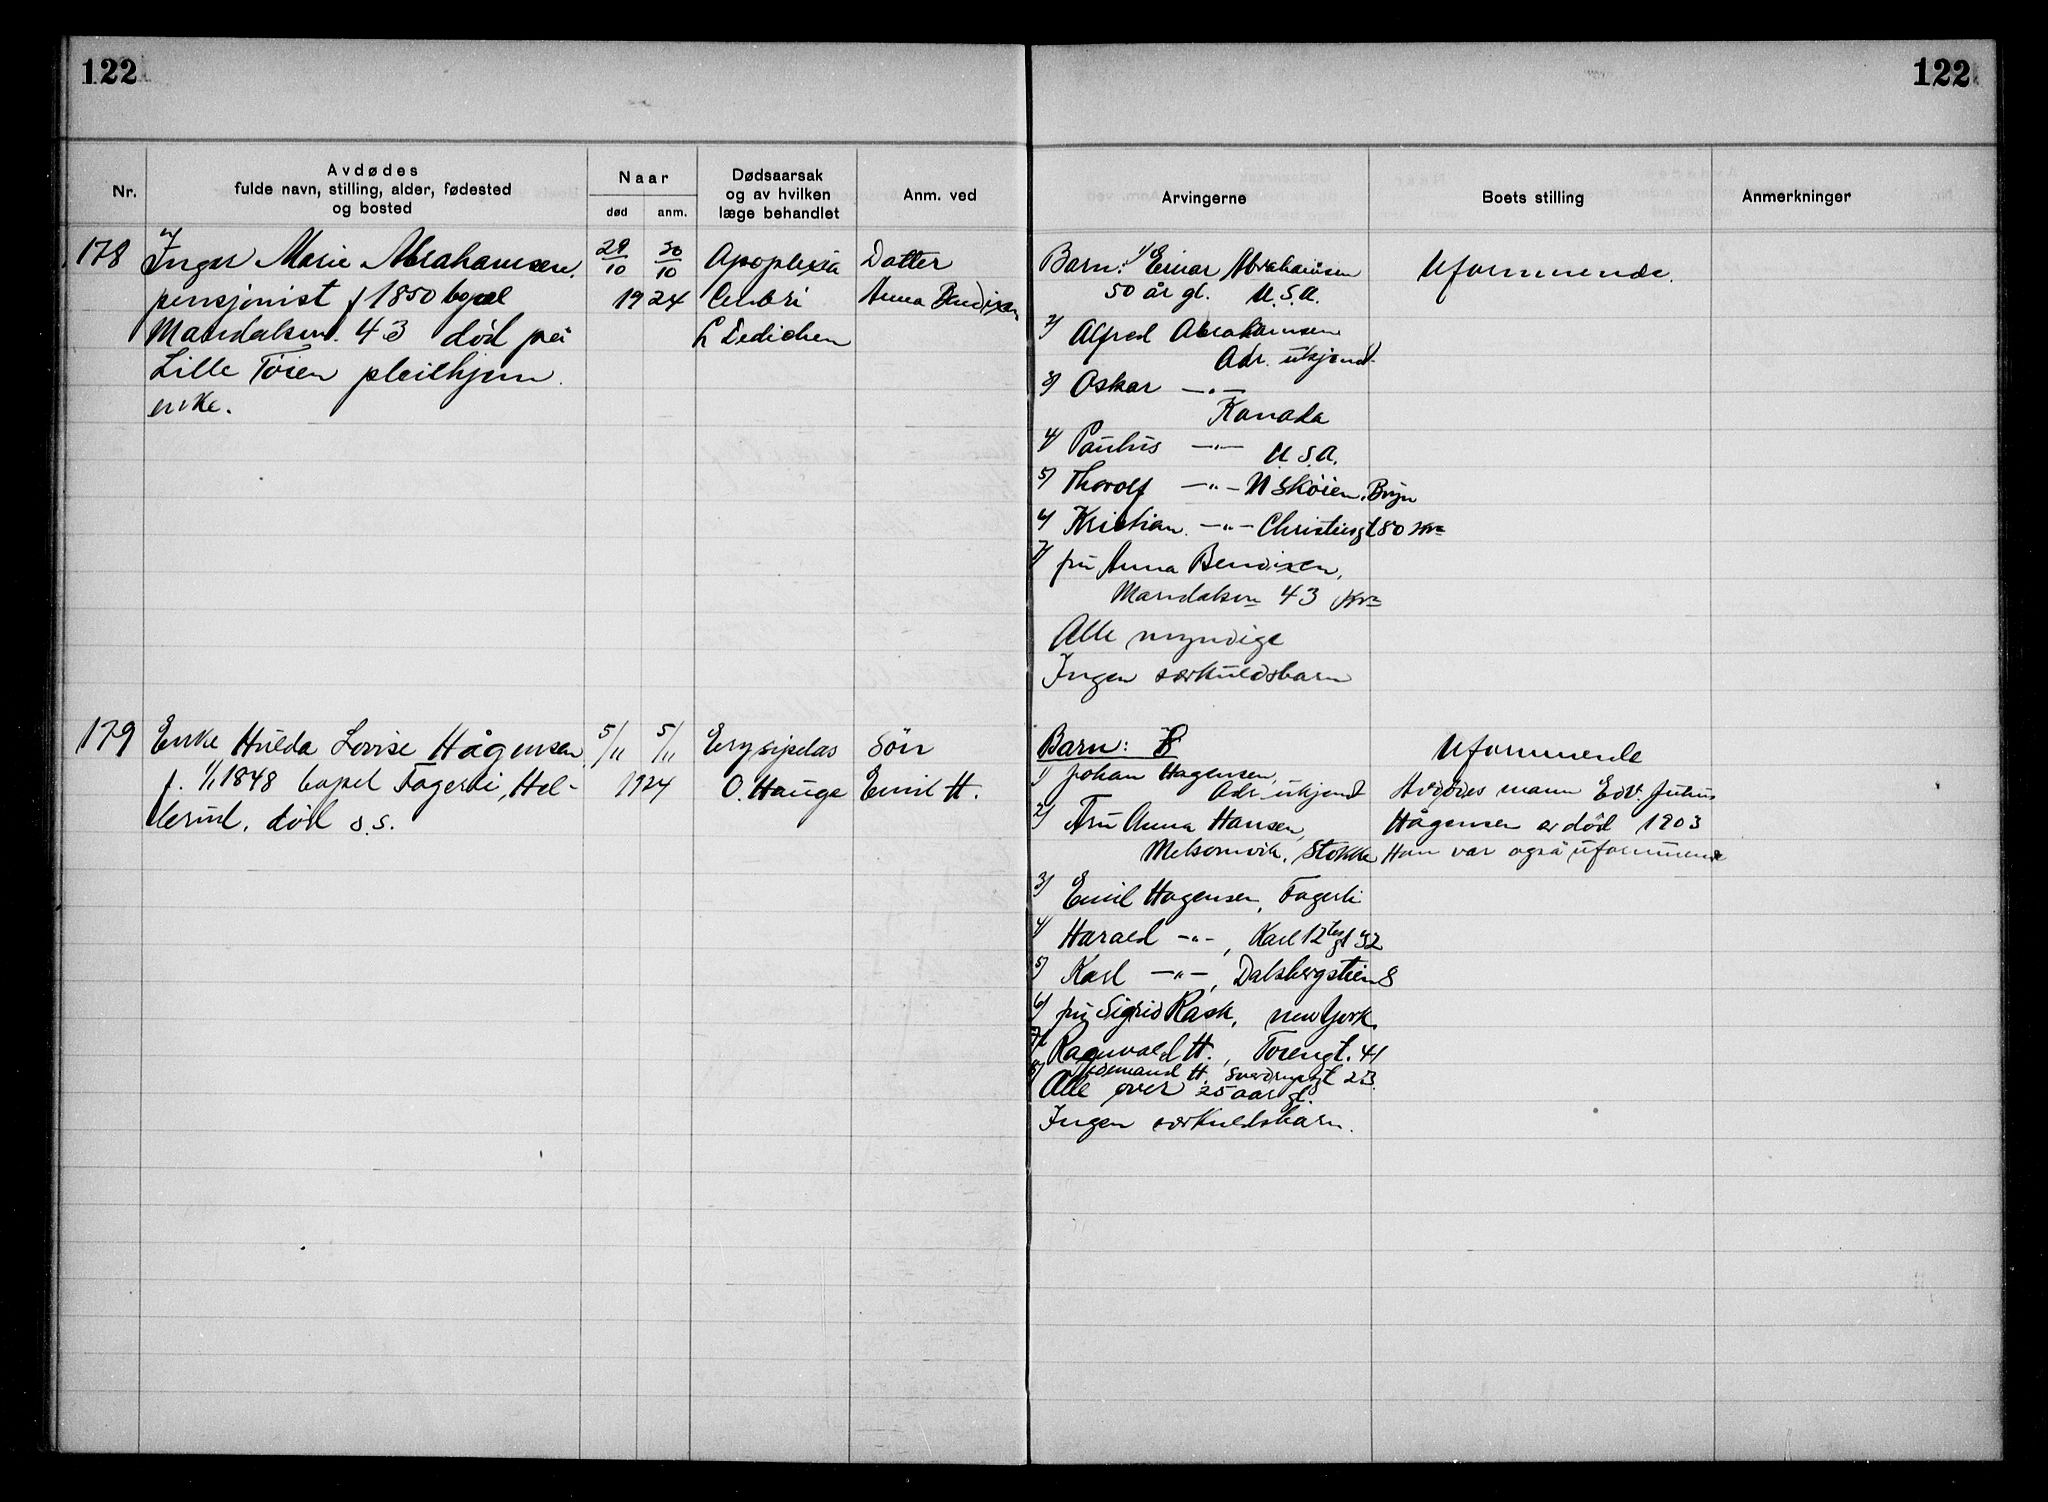 122
122
Nr.
Avdødes
fulde navn, stilling, alder, fødested
og bosted
Naar
død
anm.
Dødsaarsak
og av hvilken
læge behandlet
Anm. ved
Arvingerne
Boets stilling
Anmerkninger
178
Inger Marie Abrahamsen,
pensjonist f 1850 bopæl
Mandalsgt. 43 død på
Lille Tøien pleiehjem.
enke.
29/10
30/10
1924
Apoplexia
Cerebri
L Dedichen
Datter
Anna Bendixen
Barn: 1/ Einar Abrahamsen
50 år gl. U.S.A.
2/ Alfred Abrahamsen
Adr. ukjendt
3/ Oskar —"—
Kanada
4/ Paulus —"— U.S.A.
5/ Thorolf —"— N Skøien, Bryn
6/ Kristian —"— Christiesgt 80 Kra
7/ fru Anna Bendixen,
Mandalsgt 43 Kra
Alle myndige
Ingen særkuldsbarn
Uformuende.
179
Enke Hulda Lovise Hågensen
f. 1/1 1848 bopæl Fagerli, Hel-
lerud, død s.s.
5/11
5/11
1924
Erysipelas
O. Hauge
Søn
Emil H.
Barn: 8
1/ Johan Hagensen,
Adr. ukjendt
2/ Fru Anna Hansen,
Melsomvik, Stokke
3/ Emil Hagensen, Fagerli
4/ Harald —"—, Karl 12tes gt 32
5/ Karl —"—, Dalsbergstien 8
6/ fru Sigrid Rask, New York
7/ Ragnvald H., Torengt. 41
8/ Tidemand H. Sverdrupsgt 23.
Alle over 25 aar gl.
Ingen særkuldsbarn.
Uformuende
Avdødes mann Edv. Julius
Hågensen er død 1903
Han var også uformuende